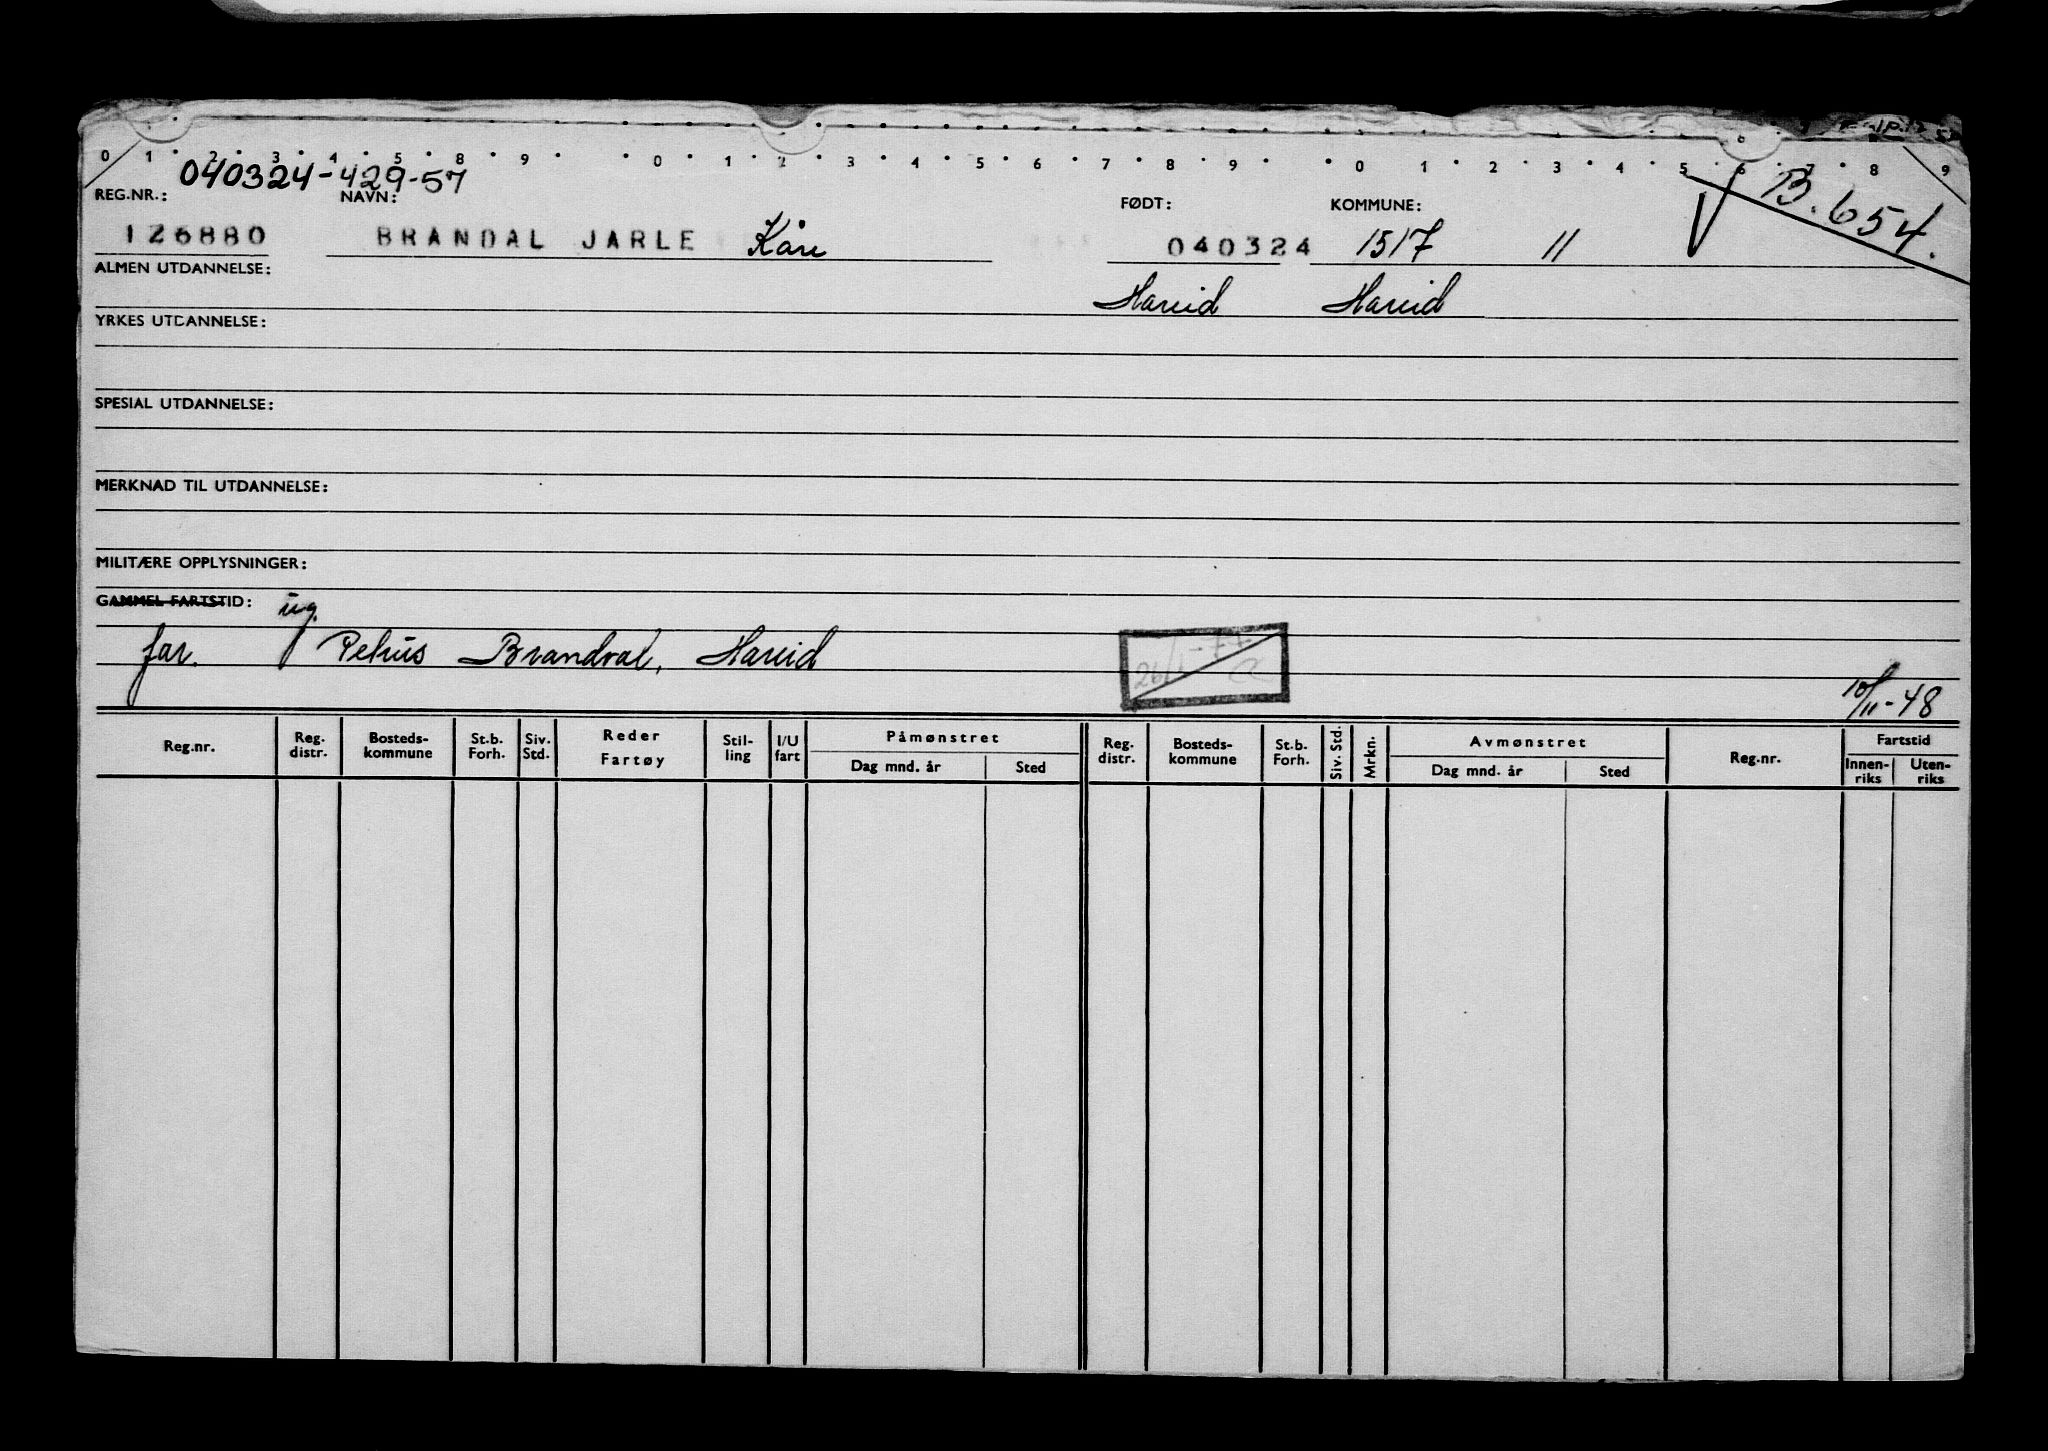 0 1 2 3 4 5 8 9 0 1 2 3 4 5 6 7 8 9 0 1 2 3 4 5 6 7 8 9
040324-429-57
REG.NR.: NAVN: FØDT: KOMMUNE: B.654.
126880 BRANDAL JARLE Kåre 040324 1517 11
ALMEN UTDANNELSE:
Hareid Hareid
YRKES UTDANNELSE:
SPESIAL UTDANNELSE:
MERKNAD TIL UTDANNELSE:
MILITÆRE OPPLYSNINGER:
GAMMEL FARTSTID: ug.
far. Petrus Brandal, Hareid
10/11-48
Reg.nr. Reg. distr. Bosteds-kommune St.b. Forh. Siv. Std. Reder Fartøy Stil-ling I/U fart Påmønstret Dag mnd. år Sted Reg. distr. Bosteds-kommune St.b. Forh. Siv. Std. Mrkn. Avmønstret Dag mnd. år Sted Reg.nr. Fartstid Innen-riks Uten-riks